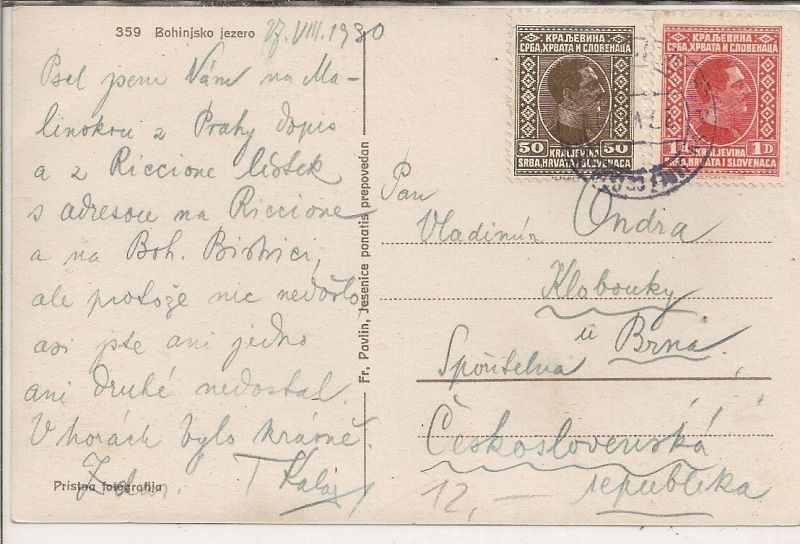 359 Bohinjsko jezero 27. VIII. 1930
Psal jsem Vám na Ma-
linokou z Prahy dopis
a z Riccione lístek
s adresou na Riccione
a na Boh. Bistrici,
ale protože nic nedošlo
asi jste ani jedno
ani druhé nedostal.
V horách bylo krásně.
Zdar. T
Pristna fotografija
Fr. Pavlin, Jesenice ponatis prepovedan
КРАЉЕВИНА
СРБА, ХРВАТА И СЛОВЕНАЦА
50 50
KRALJEVINA
SRBA, HRVATA I SLOVENACA
КРАЉЕВИНА
СРБА, ХРВАТА И СЛОВЕНАЦА
1 D
KRALJEVINA
HRVATA I SLOVENACA
Pan
Vladimír Ondra
Klobouky
u Brna.
Spořitelna
Československá
republika
12,—